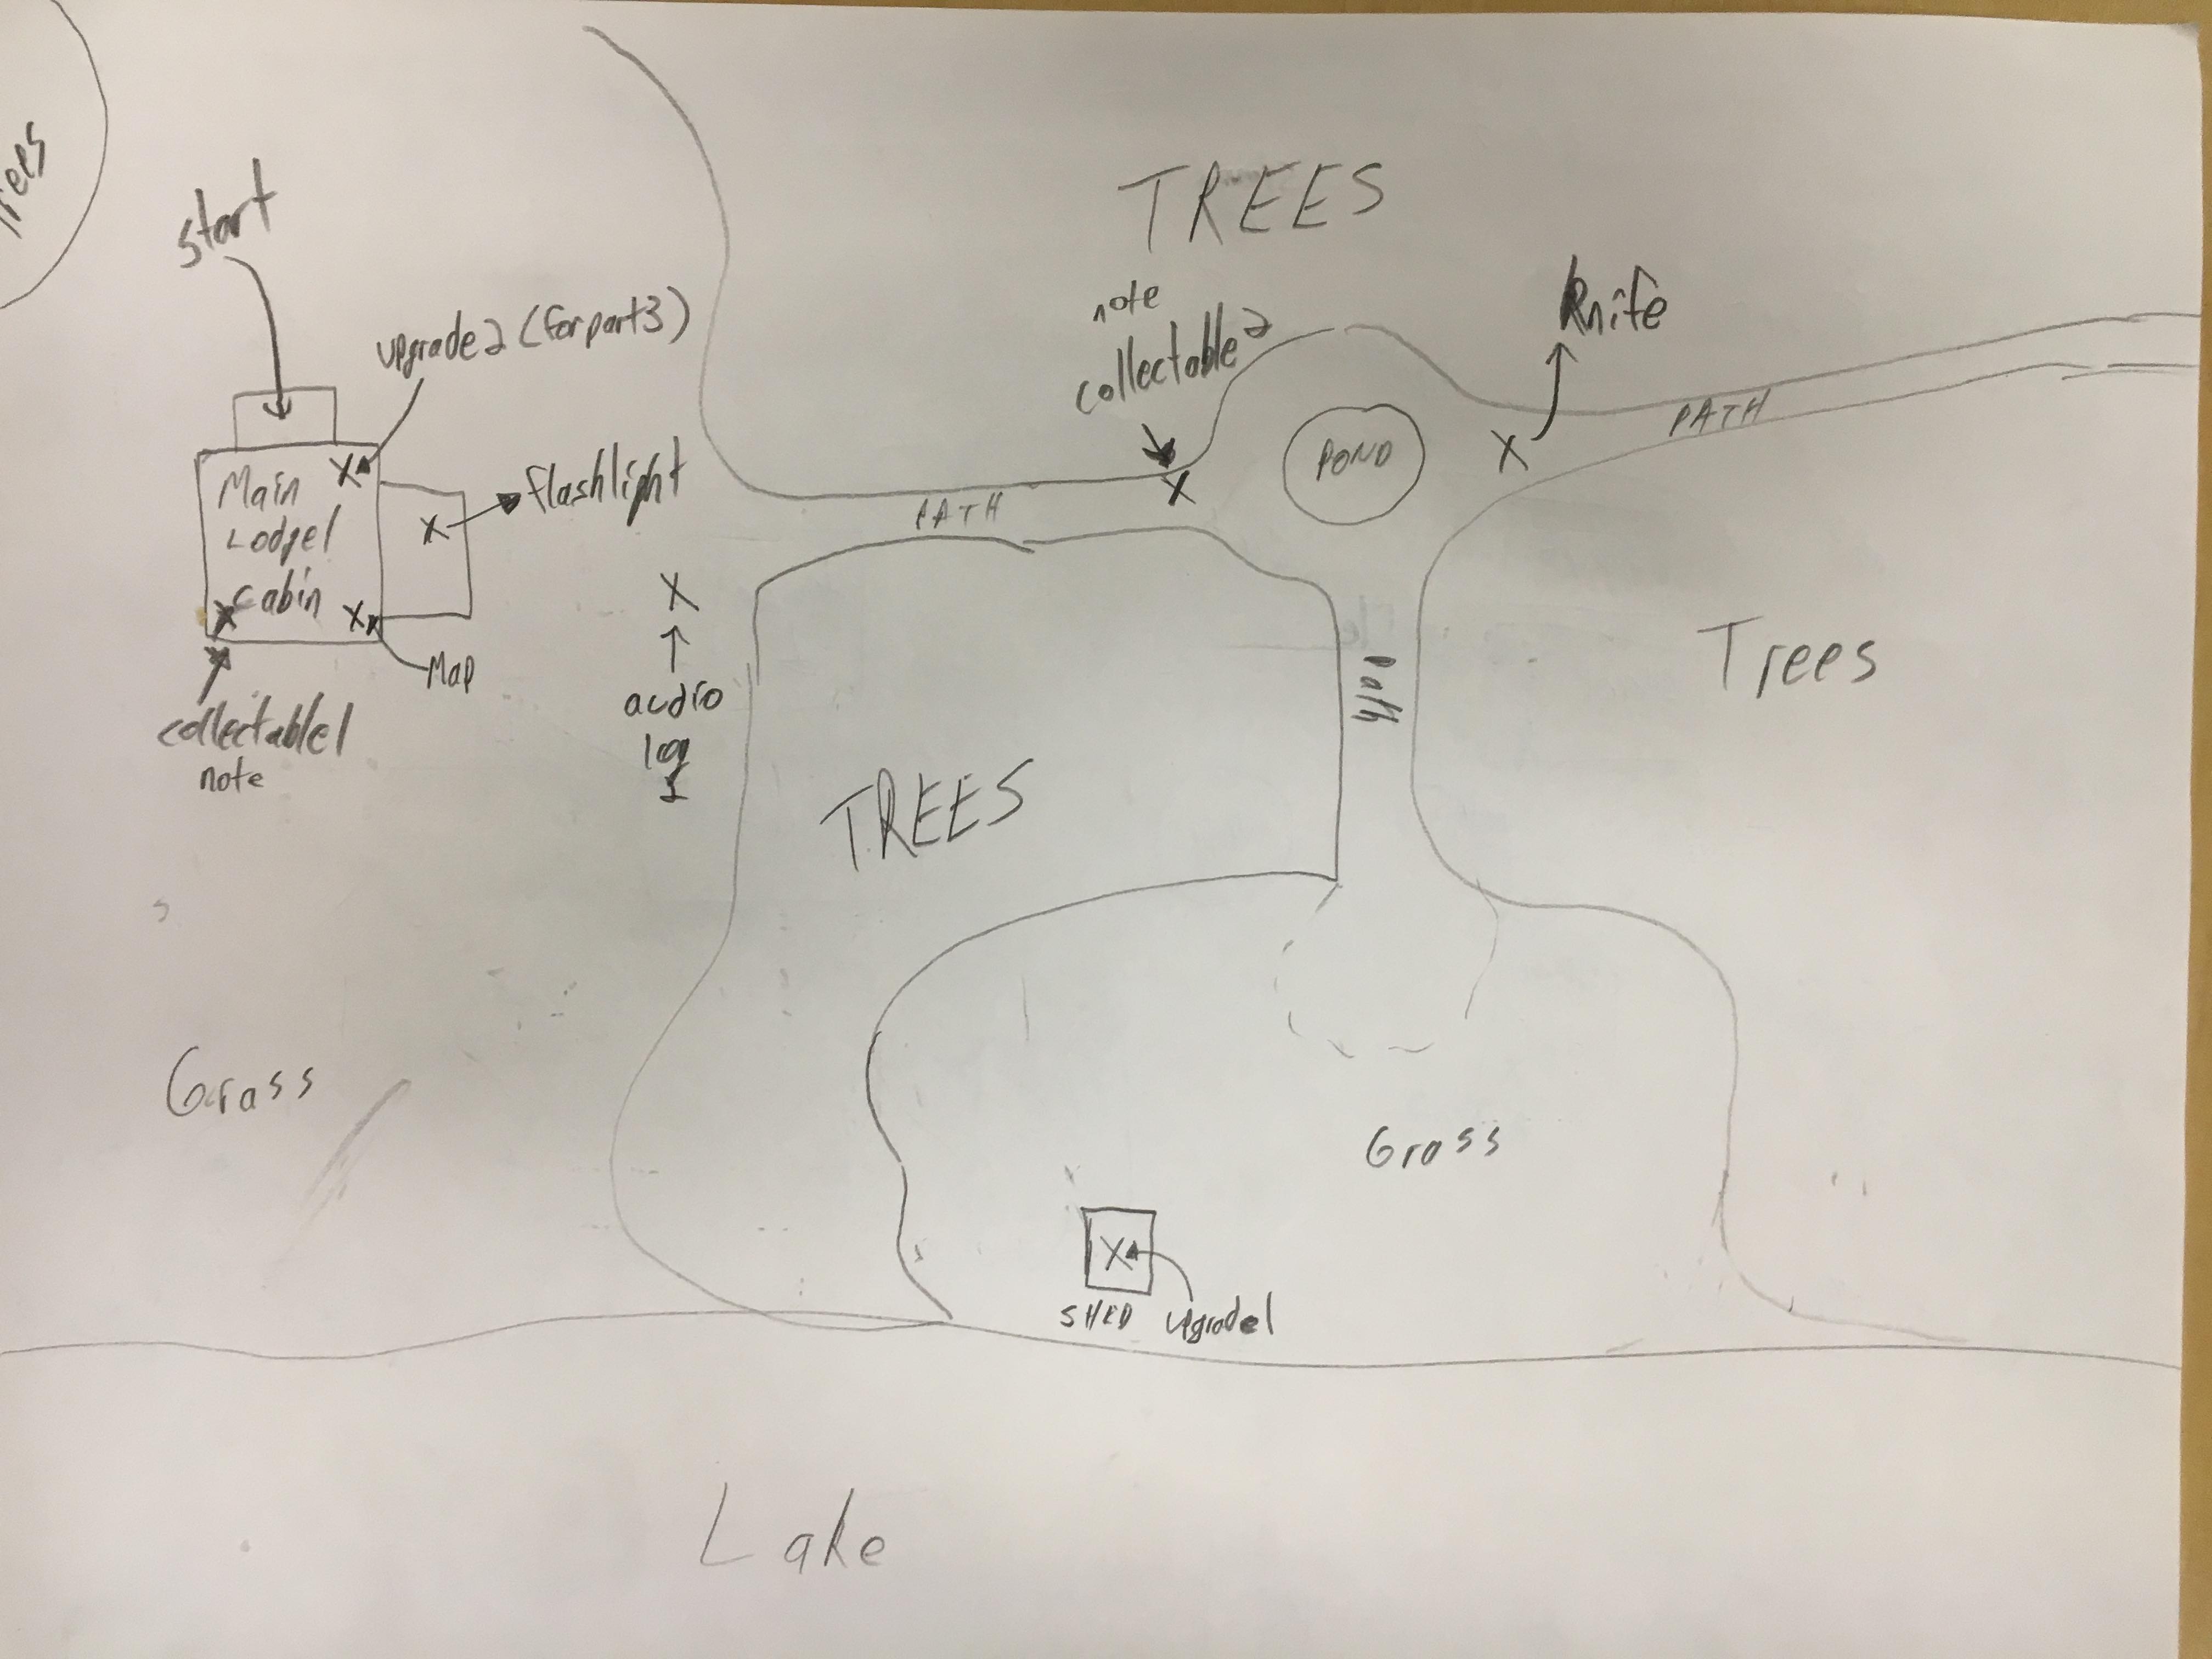 Trees
start
upgrade 2 (for part 3)
Main
Lodge/
Cabin
X
X
flashlight
X
X
Map
collectable 1
note
X
audio
log
1
TREES
note
collectable 2
X
PATH
POND
X
Knife
PATH
Path
Trees
TREES
Grass
Grass
X
SHED
upgrade 1
Lake